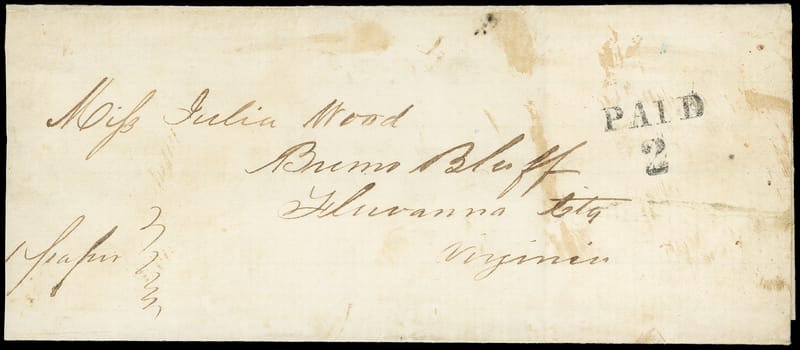 Miss Julia Wood
Bremo Bluff
Fluvanna Cty
Virginia
1 paper
PAID
2